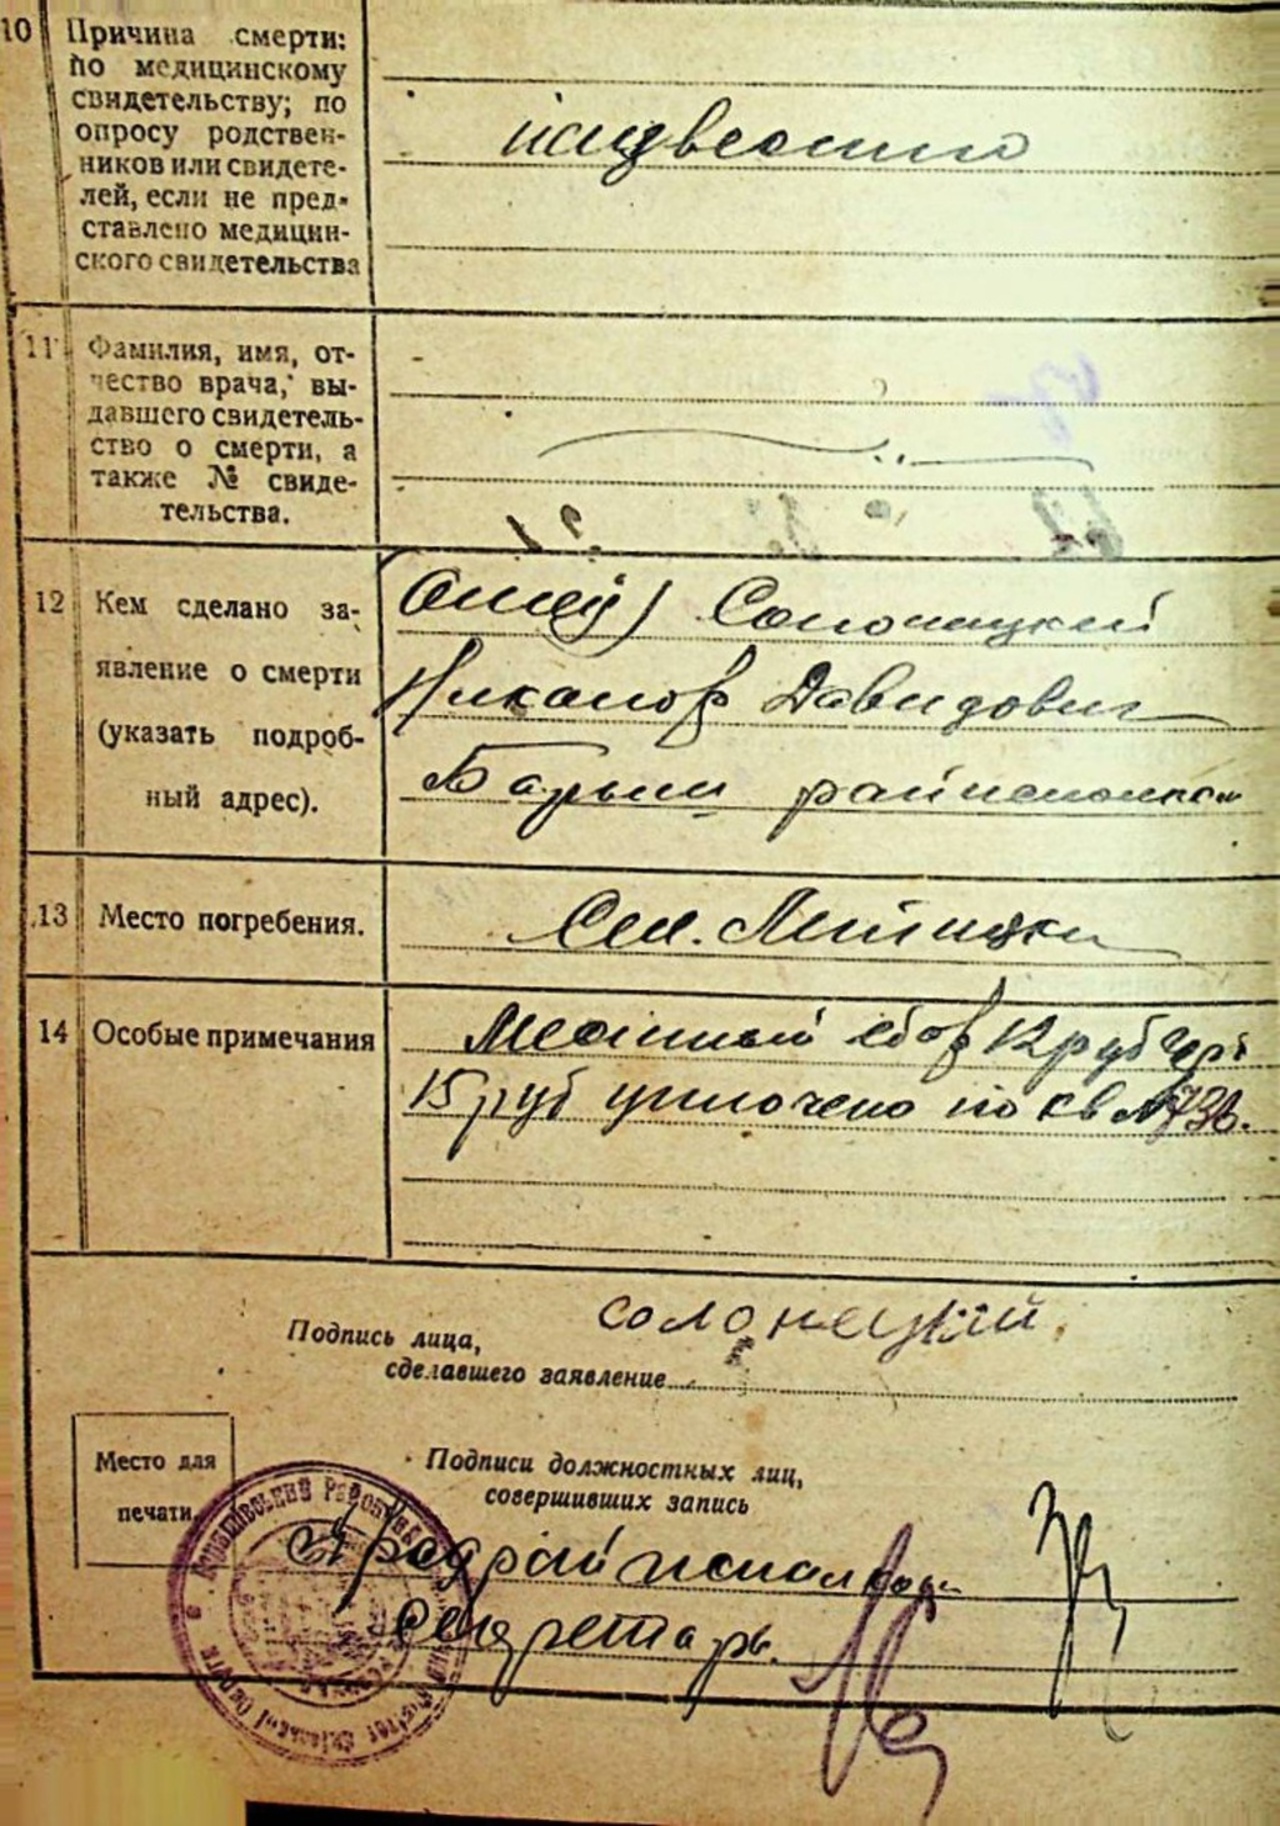 10 Причина смерти:
по медицинскому
свидетельству; по
опросу родствен-
ников или свидете-
лей, если не пред-
ставлено медицин-
ского свидетельства
11 Фамилия, имя, от-
чество врача, вы-
давшего свидетель-
ство о смерти, а
также № свиде-
тельства.
12 Кем сделано за-
явление о смерти
(указать подроб-
ный адрес).
Солонецкий
Никанор Давидович
Барыш
13 Место погребения.
Сел.
14 Особые примечания
Местный сбор 12 руб
15 руб уплочено по кв №
Подпись лица,
сделавшего заявление
солонецкий
Место для
печати
Подписи должностных лиц,
совершивших запись
секретарь.